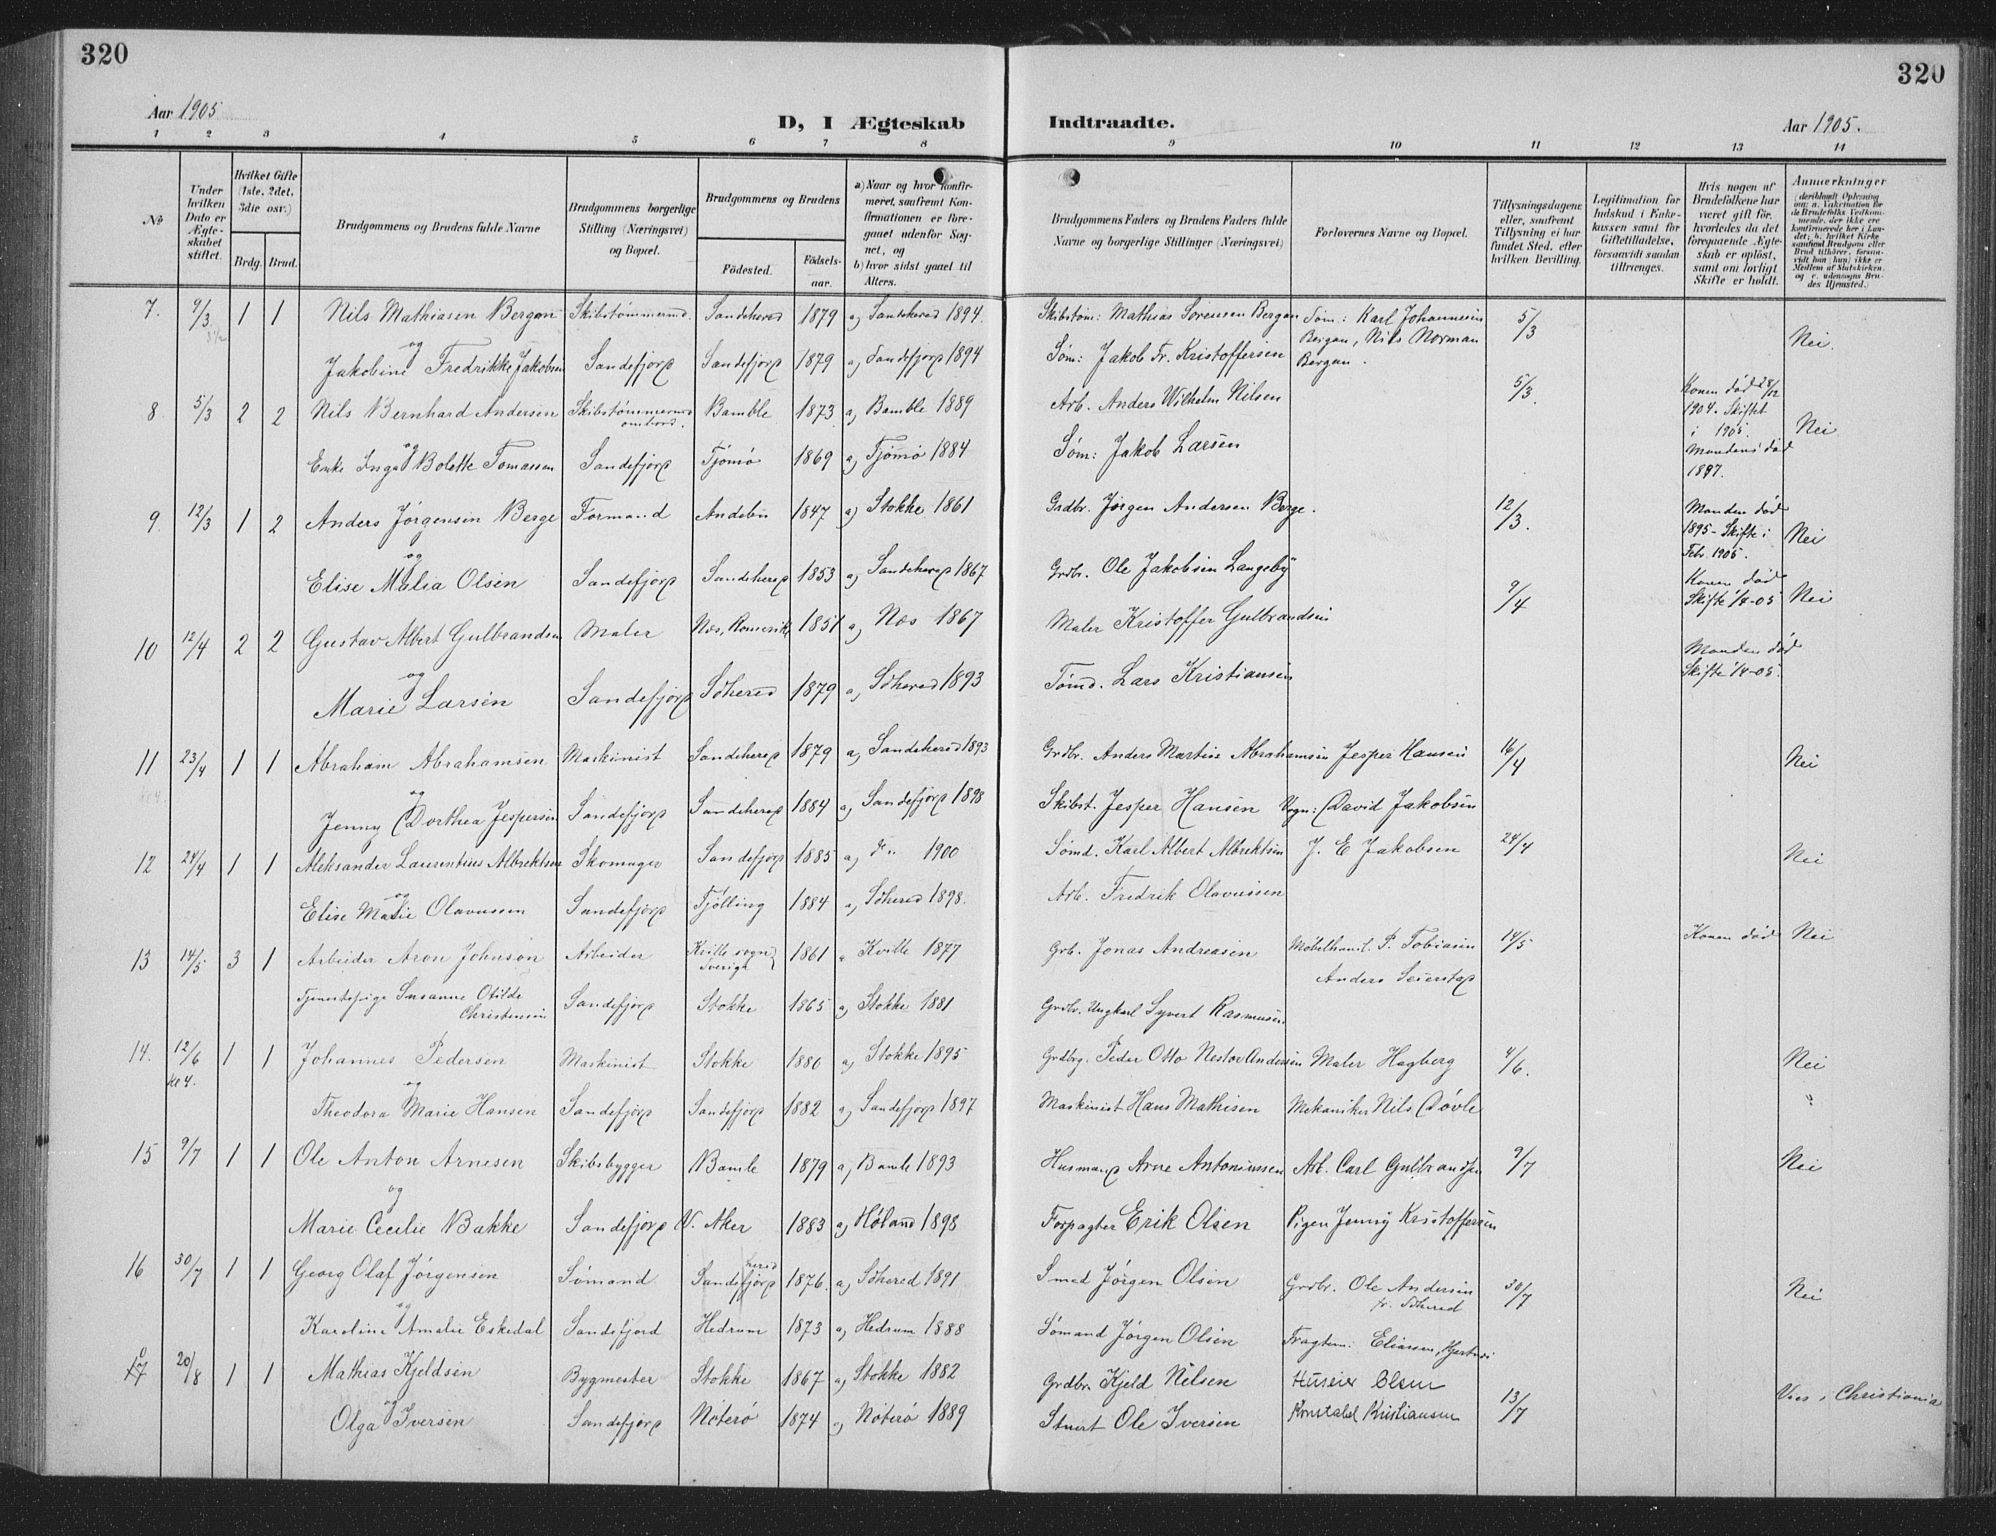 320
320
Aar 1905
D, I Ægteskab
Indtraadte.
Aar 1905.
1 2 3 4 5 6 7 8 9 10 11 12 13 14
No
Under hvilken Dato er Ægteskabet stiftet.
Hvilket Gifte (1ste, 2det, 3die osv.)
Brdg. Brud.
Brudgommens og Brudens fulde Navne
Brudgommens borgerlige Stilling (Næringsvei) og Bopæl.
Brudgommens og Brudens
Födested.
Födselsaar.
a) Naar og hvor konfirmeret, saafremt Konfirmationen er foregaaet udenfor Sognet, og
b) hvor sidst gaaet til Alters.
Brudgommens Faders og Brudens Faders fulde Navne og borgerlige Stillinger (Næringsvei)
Forlovernes Navne og Bopæl.
Tillysningsdagene eller, saafremt Tillysning ei har fundet Sted, efter hvilken Bevilling.
Legitimation for Indskud i Enkekassen samt for Giftetilladelse, forsaavidt saadan tiltrænges.
Hvis nogen af Brudefolkene har været gift för, hvorledes da det foregaaende Ægteskab er oplöst, samt om lovligt Skifte er holdt.
Anmerkninger (deriblandt Oplysning om: a. Vakcination for de Brudefolks Vedkommende, der ikke ere konfirmerede her i Landet; b. hvilket Kirkesamfund Brudgom eller Brud tilhörer, forsaavidt han (hun) ikke er Medlem af Statskirken, og c. udensogns Brudes Hjemsted.)
7. 9/3 1 1 Nils Mathiasen Bergan Skibstømmermd. Sandeherred 1879 a) Sandeherred 1894. Skibstøm: Mathias Sorensen Bergan Tøm: Karl Johannesen Bergan, Nils Norman Bergan. 5/3 Nei.
og
Jakobine Fredrikke Jakobsen Sandefjord Sandefjord 1879 a) Sandefjord 1894 Søm: Jakob Fr. Kristoffersen
8 5/3 2 2 Nils Bernhard Andersen Skibstømmermd ombord. Bamble 1873 a) Bamble 1889 Arb. Anders Wilhelm Nilsen 5/3. Konen død 28/12 1904. Skiftet i 1905. Nei
og
Enke Inga Bolette Tomassen Sandefjord Tjømø 1869 a) Tjømø 1884 Søm: Jakob Larsen Manden død 1897.
9. 12/3 1 2 Anders Jørgensen Berge Formand Andebu 1847 a) Stokke 1861 Grdbr. Jørgen Andersen Berge. 12/3. Manden død 1895 - Skifte i Febr. 1905. Nei
og
Elise Malia Olsen Sandefjord Sandeherred 1853 a) Sandeherred 1867 Grdbr. Ole Jakobsen Langeby
10 12/4 2 2 Gustav Albert Gulbrandsen Maler Næs, Romerike 1851 a) Næs 1867 Maler Kristoffer Gulbrandsen 9/4 Konen død Skifte 1/4-05 Nei
og
Marie Larsen Sandefjord Sdherred 1879 a) Sdherred 1893 Tømd. Lars Kristiansen Manden død Skifte 1/4-05.
11 23/4 1 1 Abraham Abrahamsen Maskinist Sandeherred 1879 a) Sandeherred 1893 Grdbr. Anders Martin Abrahamsen Jesper Hansen 16/4 Nei
og
Jenny Dorthea Jespersen Sandefjord Sandeherred 1884 a) Sandefjord 1898 Skibst. Jesper Hansen Vogn: David Jakobsen
12 24/4 1 1 Aleksander Laurentius Albrektsen Skomager Sandefjord 1885 a) 1900 Sømd. Karl Albert Albrektsen J. E Jakobsen 24/4 Nei
og
Elise Marie Olavussen Sandefjord Tjølling 1884 a) Sdherred 1898. Arb. Fredrik Olavussen
13 14/5 3 1 Arbeider Aron Johnson Arbeider Kville sogn Sverige 1861 " Kville 1877 Grb. Jonas Andreasen Møbelhandl. P. Tobiasen 14/5 Konen død Nei
Tjenestepige Susanne Otilde Christensen Sandefjord Stokke 1865 a) Stokke 1881 Grdbr. Ungkarl Syvert Rasmusen Anders Seierstad
14. 12/6 kl 4. 1 1 Johannes Pedersen Maskinist Stokke 1880 a) Stokke 1895 Grdbrg. Peder Otto Nestor Andersen Maler Hagberg 4/6. Nei
og
Theodora Marie Hansen Sandefjord Sandefjord 1882 a) Sandefjord 1897 Maskinist Hans Mathisen Mekaniker Nils Døvle "
15 9/7 1 1 Ole Anton Arnesen Skibsbygger Bamle 1879 a) Bamle 1893 Husmand Arne Antoniussen Arb. Carl Gulbrandsen 9/7 Nei
og
Marie Cecilie Bakke Sandefjord V. Aker 1883 a) Høland 1898 Forpagter Erik Olsen Pigen Jenny Kristoffersen
16 30/7 1 1 Georg Olaf Jørgensen Sømand Sandefjord herred 1876. a) Sdherred 1891 Smed Jørgen Olsen Grdbr. Ole Andersen fr. Sdherred 30/7 Nei
og
Karoline Amalie Eskedal Sandefjord Hedrum 1873 a) Hedrum 1888 Sømand Jørgen Olsen Fragtem: Eliassen, Hjertnes
17 20/8 1 1 Mathias Kjeldsen Bygmester Stokke 1867 a) Stokke 1882 Grdbr Kjeld Nilsen Huseier Olsen 13/7 Vies i Christiania
og
Olga Iversen Sandefjord Nøterø 1874 a) Nøterø 1889 Stuert Ole Iversen Konstabel Kristiansen